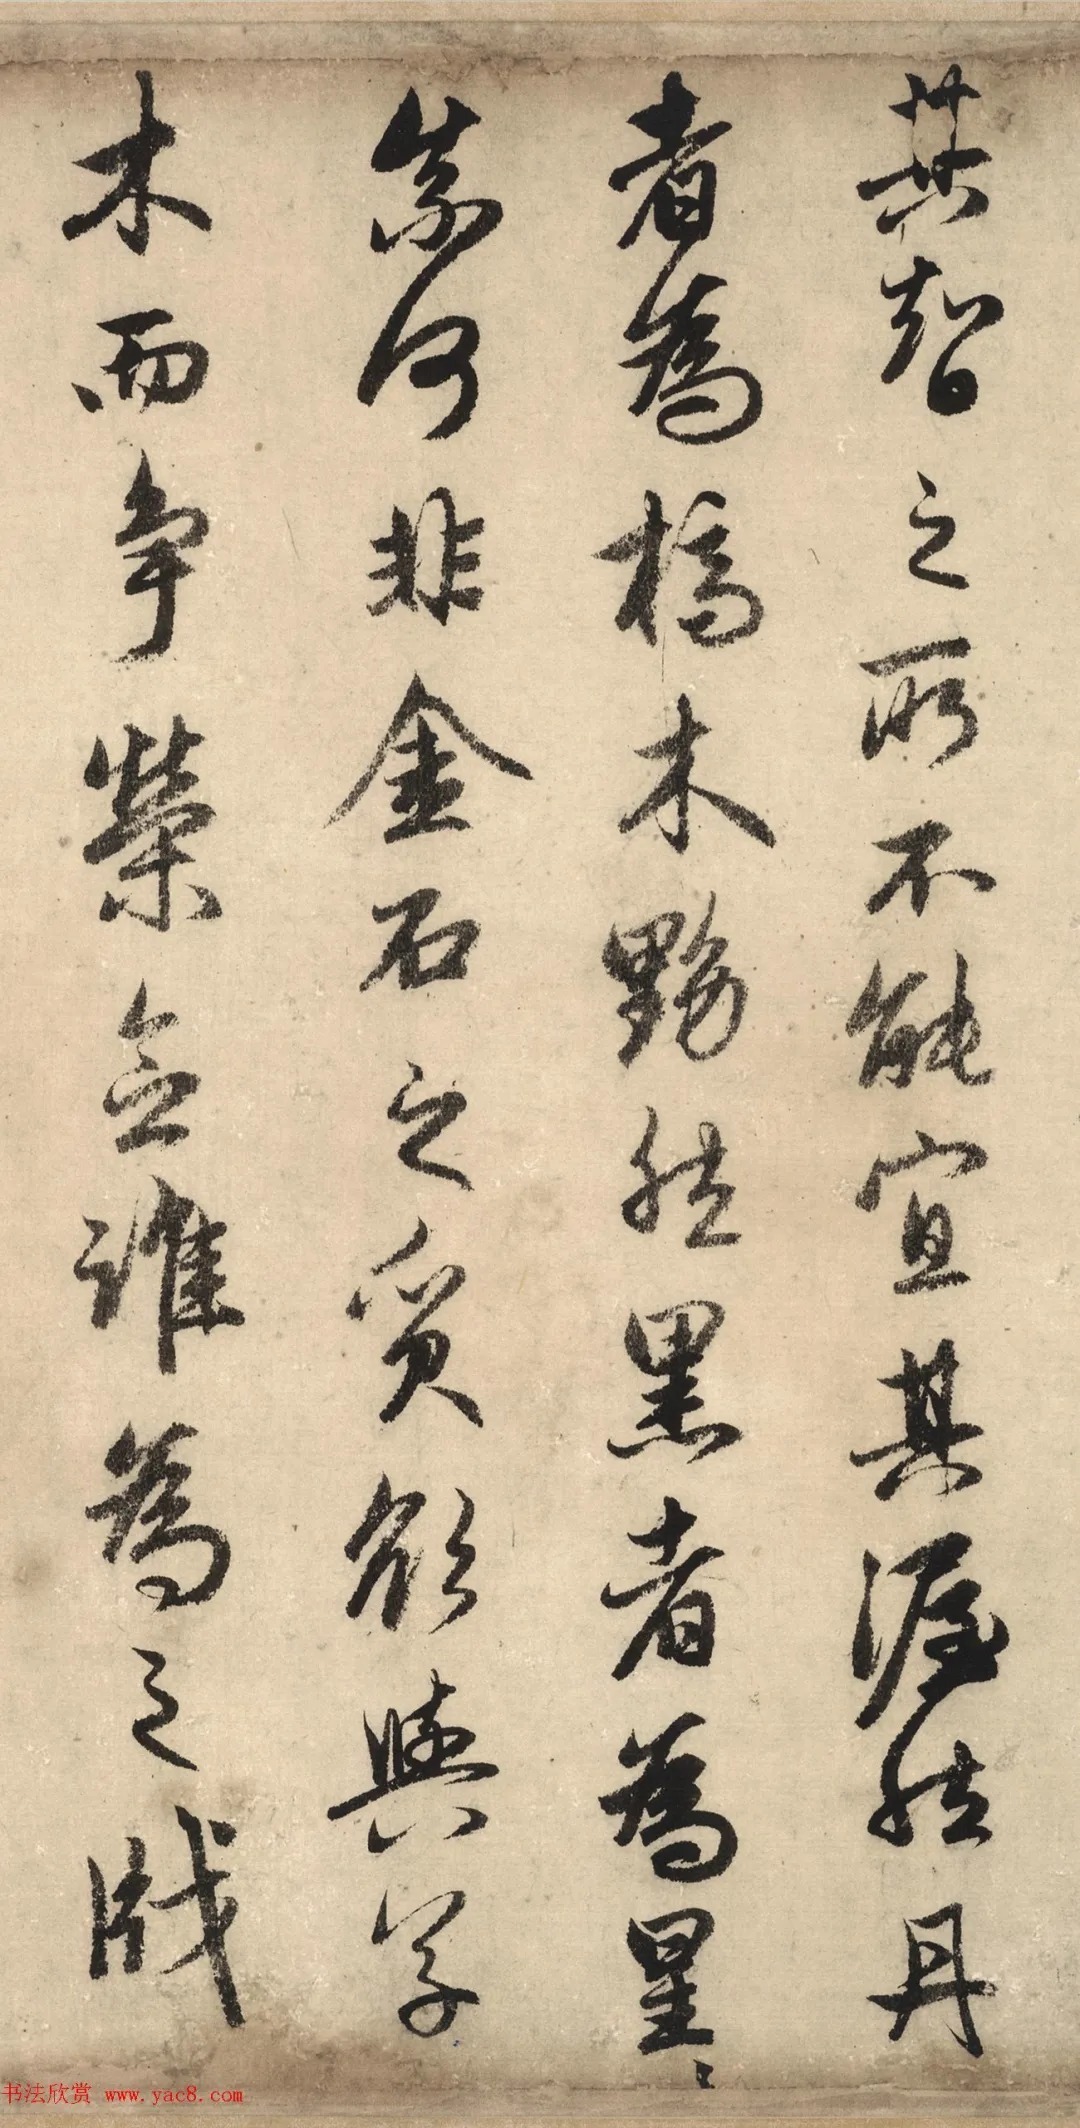 其智之所不能宜其渥然丹
者為槁木黟然黑者為星〻
奈何非金石之質欲與草
木而爭榮念誰為之戕
书法欣赏 www.yac8.com